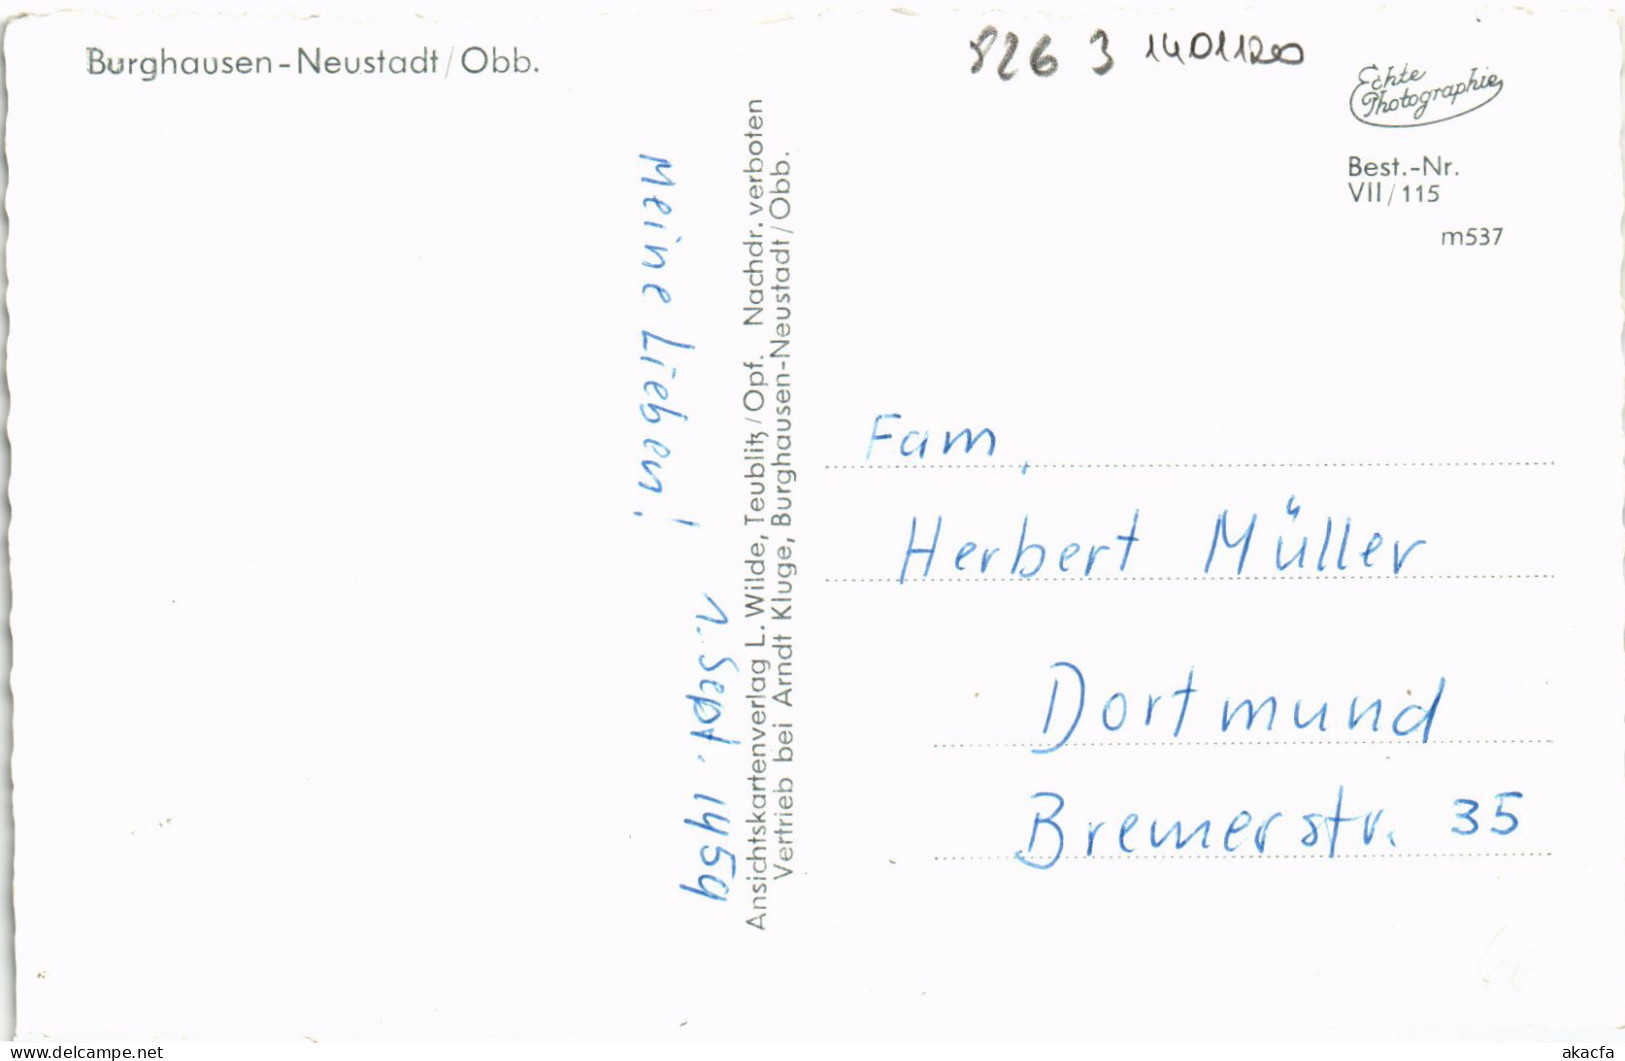 Burghausen-Neustadt/Obb.
826 3 1401120
Echte
Photographie
Best.-Nr.
VII/115
m537
Meine Lieben!
1. Sept. 1959
Ansichtskartenverlag L. Wilde, Teublitz/Opf. Nachdr. verboten
Vertrieb bei Arndt Kluge, Burghausen-Neustadt/Obb.
Fam.
Herbert Müller
Dortmund
Bremerstr. 35
www.delcampe.net
akacfa